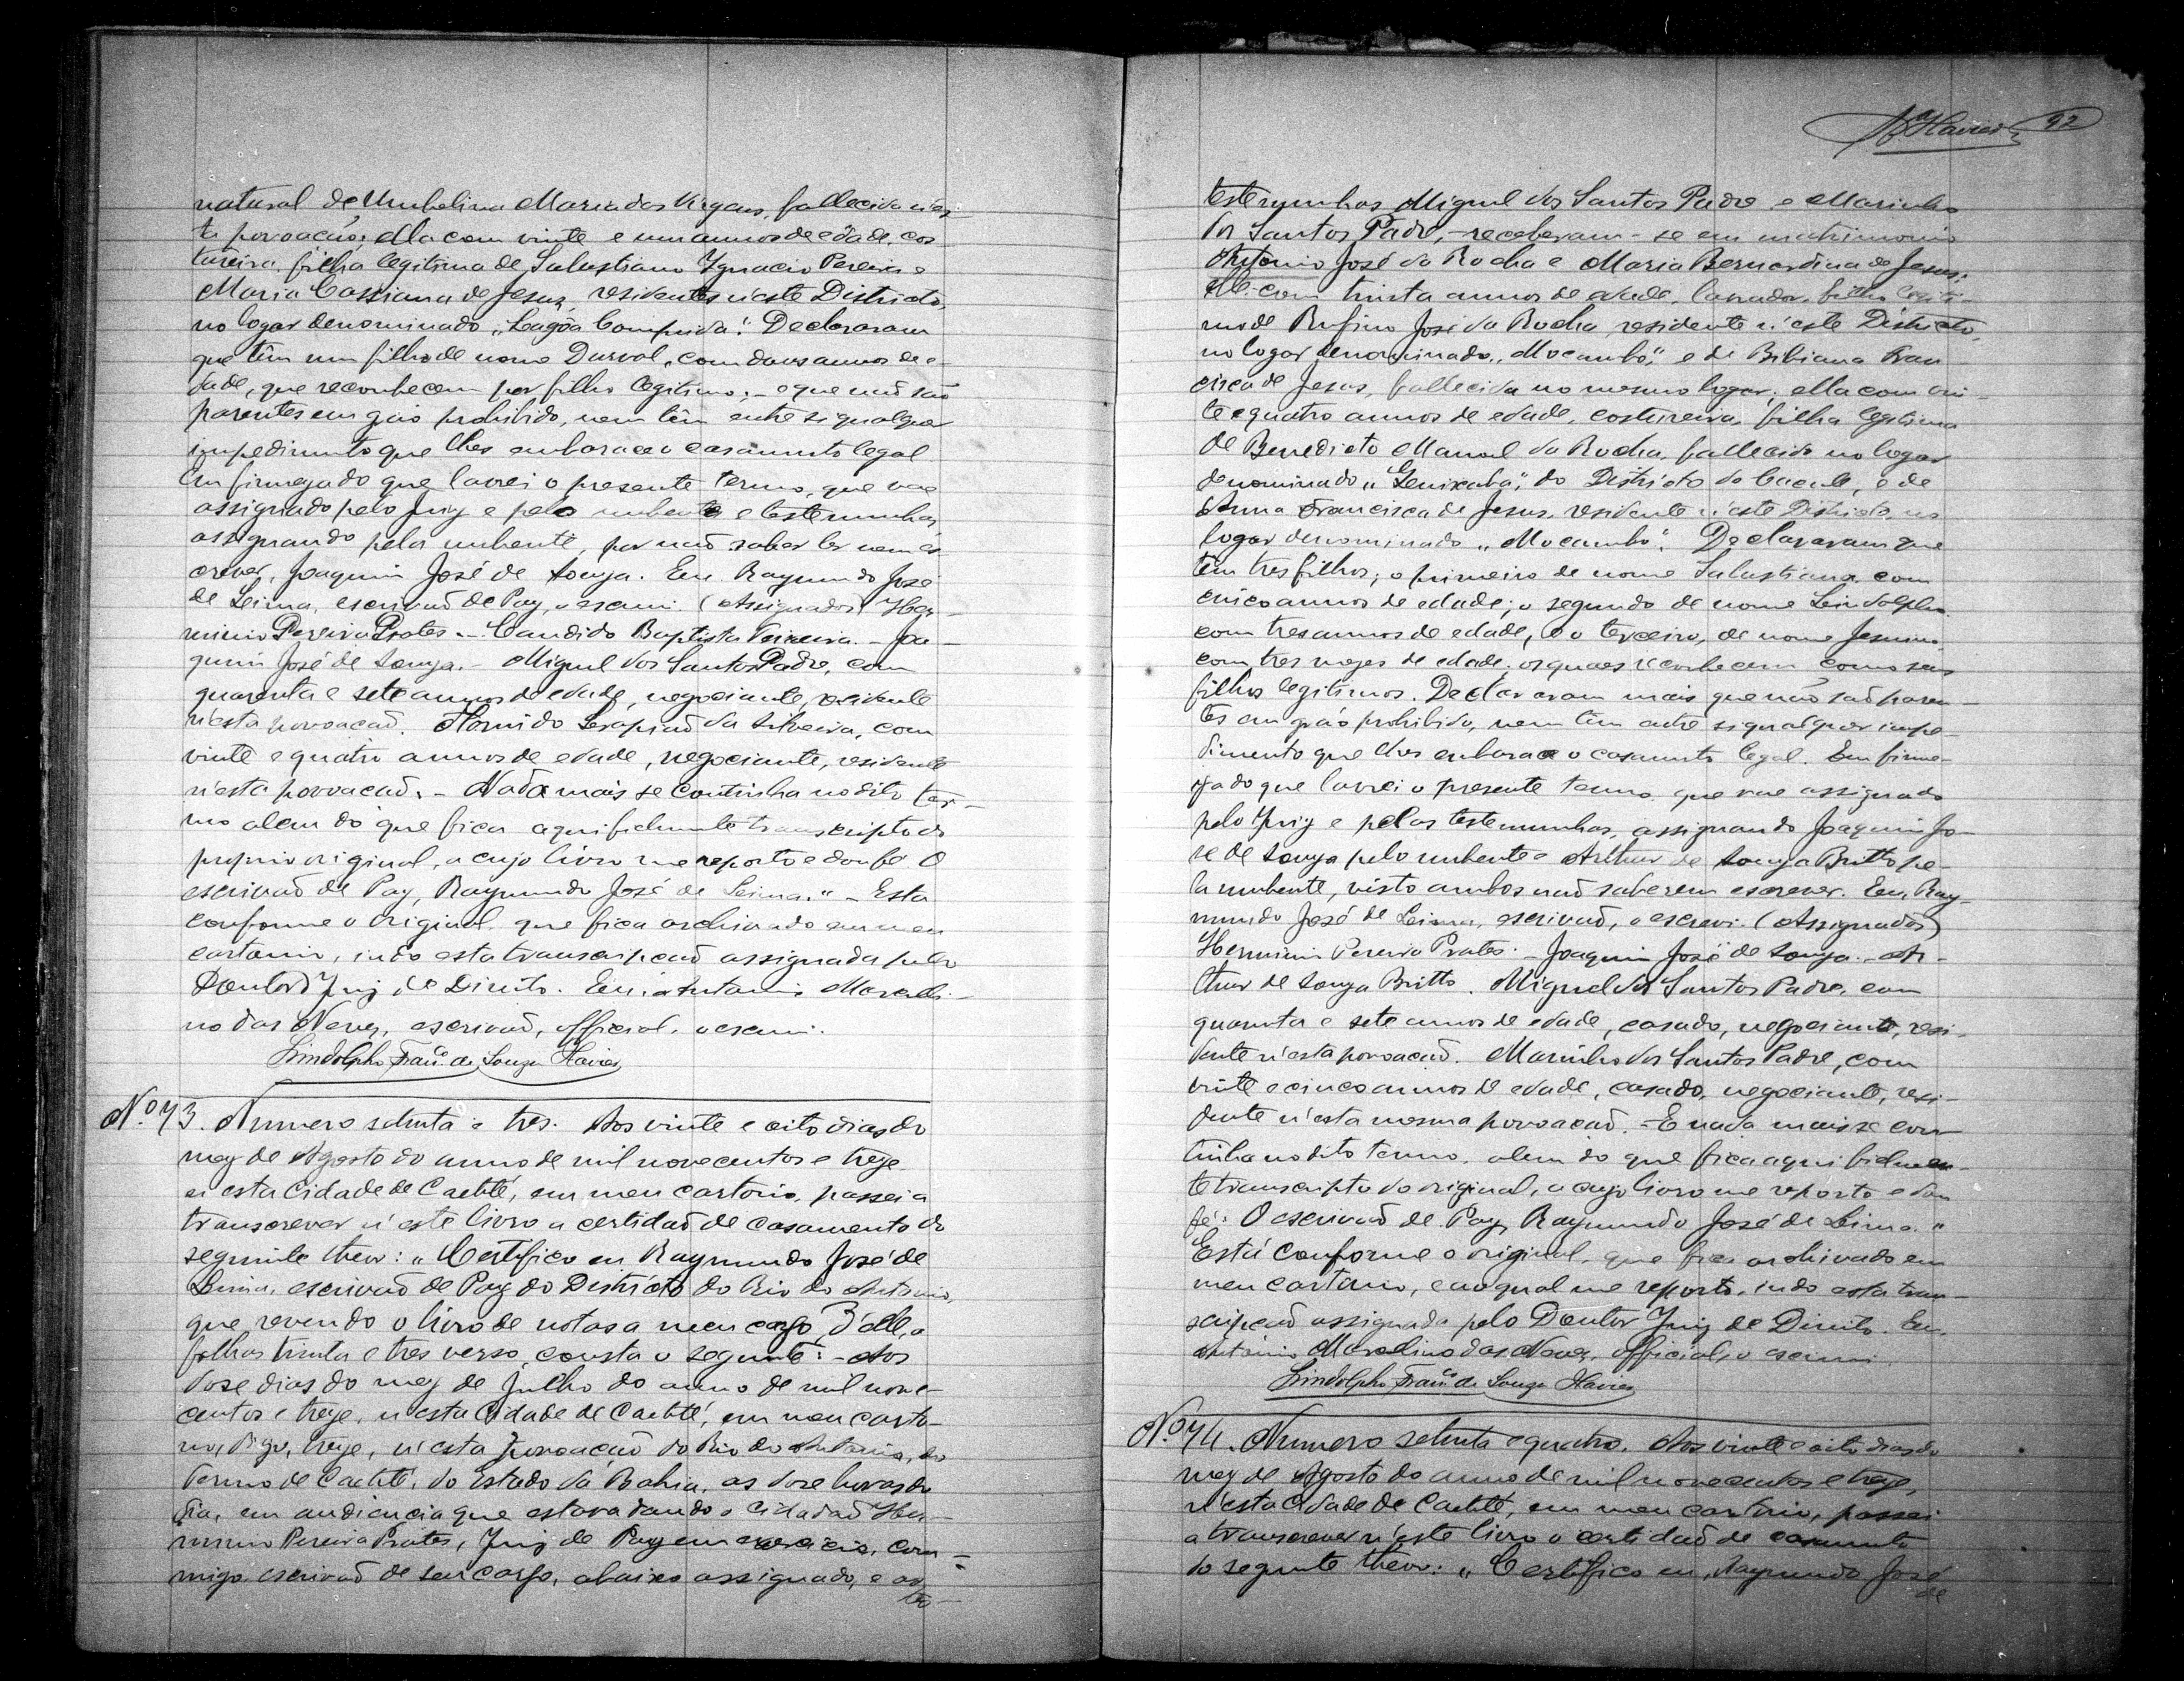 natural de Umbelina Maria das Virgens, fallecida n'es-
ta povoação; ella com vinte e um annos de edade, cos
tureira, filha legitima de Salustiano Ygnacio Pereira e
Maria Cassiana de Jesus, residentes n'este Districto,
no logar denominado "Lagôa Comprida". Declararam
que têm um filho de nome Durval, com dous annos de e-
dade, que reconhecem por filho legitimo; - e que não são
parentes em gráo prohibido, nem têm entre si qualquer
impedimento que lhes embarace o casamento legal
Em firmeza do que lavrei o presente termo, que vae
assignado pelo Juiz e pelo nubente e testemunhas,
assignando pela nubente, por não saber ler nem es
crever, Joaquim José de Souza. Eu Raymundo José
de Leima, escrivão de Paz, o escrevi (Assignados) Her-
minio Pereira Prates. - Candido Baptista Teixeira. - Joa-
quim José de Souza. - Miguel dos Santos Padre, com
quarenta e sete annos de edade, negociante, residente
n'esta povoação. Serapião da Silveira, com
vinte e quatro annos de edade, negociante, residente
n'esta povoação. - Nada mais se continha no dito ter-
mo alem do que fica aqui fielmente transcripto do
proprio original, a cujo livro me reporto e dou fé. O
escrivão de Paz, Raymundo José de Leima." - Esta
conforme o original, que fica archivado em meu
cartorio, indo esta transcripção assignada pelo
Doutor Juiz de Direito. Eu, Antonio Marcelli-
no das Neves, escrivão, official, o escrevi.
Lindolpho Franco. de Souza Xavier
No. 73. Numero setenta e tres. Aos vinte e oito dias do
mez de Agosto do anno de mil novecentos e treze
n'esta Cidade de Caetité, em meu cartorio, passei a
transcrever n'este livro a certidão de casamento do
seguinte theor: "Certifico eu Raymundo José de
Leima, escrivão de Paz do Districto do Rio do Antonio,
que, revendo o livro de notas a meu cargo, d'elle, a
folhas trinta e tres verso, consta o seguinte: - Aos
dose dias do mez de Julho do anno de mil nove-
centos e treze, n'esta Cidade de Caetité, em meu carto-
rio, digo, treze, n'esta povoação do Rio do Antonio, do
Termo de Caetité, do Estado da Bahia, as dose horas do
dia, em audiencia que estava dando o cidadão Her-
minio Pereira Prates, Juiz de Paz em exercicio, com-
migo escrivão de seu cargo, abaixo assignado, e as
tes-
Xavier 92
testemunhas Miguel dos Santos Padre e Marinho
dos Santos Padre, - receberam-se em matrimonio
Antonio José da Rocha e Maria Bernardina de Jesus;
elle com trinta annos de edade, lavrador, filho legiti-
mo de Rufino José da Rocha, residente n'este Districto,
no logar denominado "Mocambo", e de Bibiana Fran
cisca de Jesus, fallecida no mesmo logar; ella com vin-
te e quatro annos de edade, costureira, filha legitima
de Benedicto Manoel da Rocha, fallecido no logar
denominado do Districto do Caculé, e de
Anna Francisca de Jesus, residente n'este Districto, no
logar denominado "Mocambo". Declararam que
têm tres filhos; o primeiro de nome Salustiana com
cinco annos de edade; o segundo de nome Leindolpho
com tres annos de edade, e o terceiro, de nome Jesuino
com tres mezes de edade; os quaes reconhecem como seus
filhos legitimos. Declararam mais que não são paren-
tes em gráo prohibido, nem têm entre si qualquer impe-
dimento que lhes embarace o casamento legal. Em firme-
za do que lavrei o presente termo que vae assignado
pelo Juiz e pelas testemunhas, assignando Joaquim Jo-
sé de Souza pelo nubente e Arthur de Souza Britto pe-
la nubente, visto ambos não saberem escrever. Eu, Ray-
mundo José de Leima, escrivão, o escrevi. (Assignados)
Herminio Pereira Prates. - Joaquim José de Souza. - Ar-
thur de Souza Britto. Miguel dos Santos Padre, com
quarenta e sete annos de edade, casado, negociante, resi-
dente n'esta povoação. Marinho dos Santos Padre, com
vinte e cinco annos de edade, casado, negociante, resi-
dente n'esta mesma povoação. - E nada mais se con
tinha no dito termo, alem do que fica aqui fielmen-
te transcripto do original, a cujo livro me reporto e dou
fé: O escrivão de Paz, Raymundo José de Leima."
Está conforme o original, que fica archivado em
meu cartorio, e ao qual me reporto, indo esta tran-
scripção assignada pelo Doutor Juiz de Direito. Eu,
Antonio Marcelino das Neves, official, o escrevi.
Lindolpho Franco. de Souza Xavier
No. 74. Numero setenta e quatro. Aos vinte e oito dias do
mez de Agosto do anno de mil novecentos e treze,
n'esta Cidade de Caetité, em meu cartorio, passei
a transcrever n'este livro a certidão de casamento
do seguinte theor: "Certifico eu, Raymundo José
de